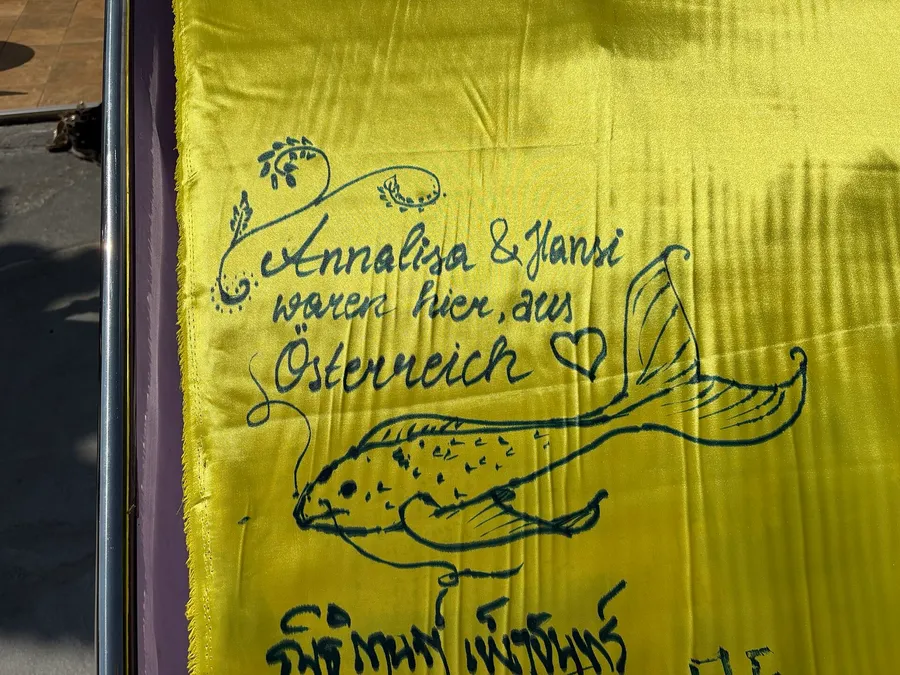 Annalisa & Hansi
waren hier, aus
Österreich ♡
เพ็งจันทร์